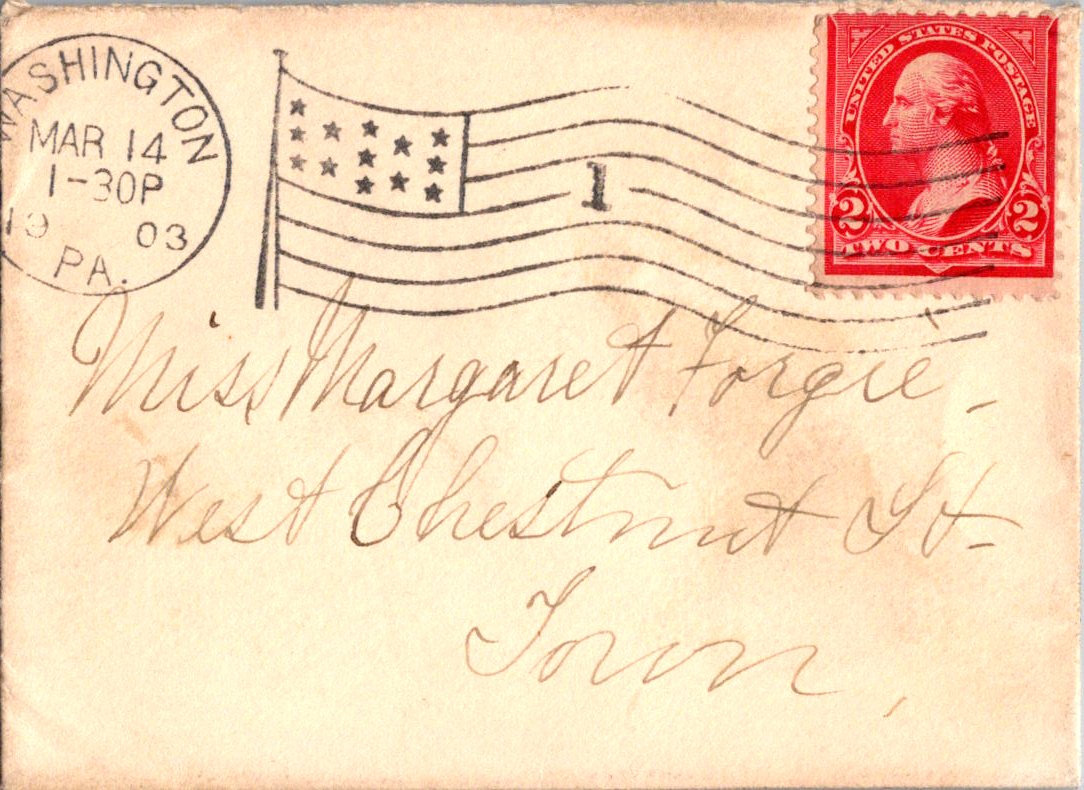 WASHINGTON
MAR 14
1-30P
19 03
PA.
1
UNITED STATES POSTAGE
2 2
TWO CENTS
Miss Margaret Forgie -
West Chestnut St-
Town,